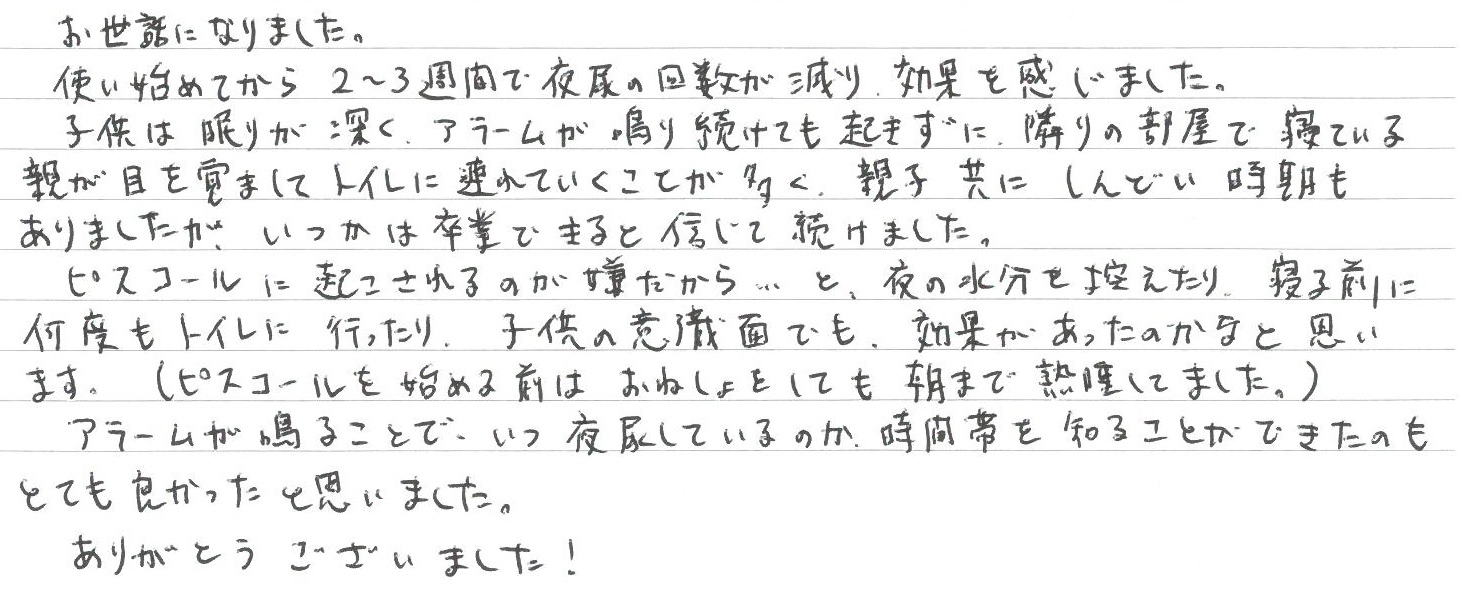 お世話になりました。
使い始めてから 2～3週間で夜尿の回数が減り、効果を感じました。
子供は眠りが深く、アラームが鳴り続けても起きずに、隣りの部屋で寝ている
親が目を覚ましてトイレに連れていくことが多く、親子共にしんどい時期も
ありましたが、いつかは卒業できると信じて続けました。
ピスコールに起こされるのが嫌だから…と、夜の水分を控えたり、寝る前に
何度もトイレに行ったり、子供の意識面でも、効果があったのかなと思い
ます。(ピスコールを始める前はおねしょをしても朝まで熟睡してました。)
アラームが鳴ることで、いつ夜尿しているのか、時間帯を知ることができたのも
とても良かったと思いました。
ありがとうございました!